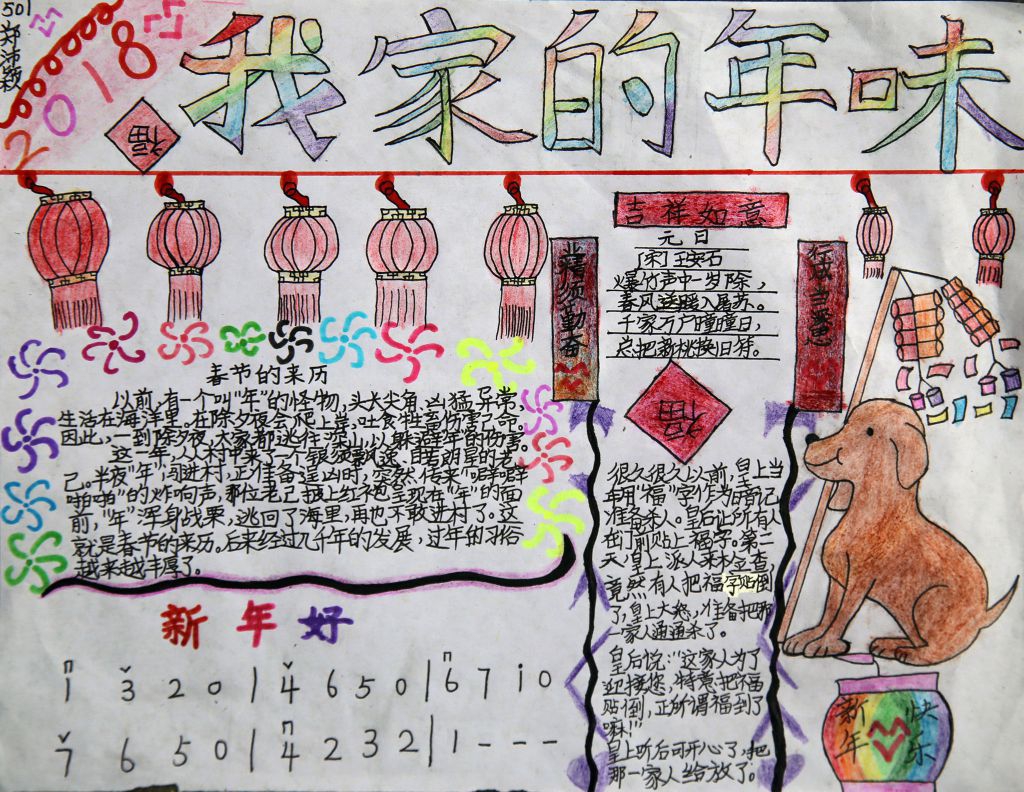 501
郑沛颖
2018
福
我家的年味
吉祥如意
业精须勤奋
元日
[宋]王安石
爆竹声中一岁除，
春风送暖入屠苏。
千家万户曈曈日，
总把新桃换旧符。
福
春节的来历
以前,有一个叫“年”的怪物,头长尖角,凶猛异常,
生活在海洋里。在除夕夜会爬上岸,吐食牲畜伤害己命。
因此,一到除夕夜,大家都逃往深山,以躲避年的伤害。
这一年,人人村中来了一个银须飘逸,目若朗星的老
己。半夜“年”闯进村,正准备逞凶时,突然传来“噼噼
啪啪”的炸响声,那位老己披上红袍呈现在“年”的面
前,“年”浑身战栗,逃回了海里,再也不敢进村了。这
就是春节的来历。后来经过几千年的发展,过年的习俗
越来越丰厚了。
很久很久以前,皇上当
年用“福”字作为暗记
准备杀人。皇后让所有人
在门前贴上福字。第二
天,皇上派人来检查
竟然有人把福字贴倒
了,皇上大怒,准备把那
一家人通通杀了。
皇后说:“这家人为了
迎接您,特意把福
贴倒,正所谓福到了
嘛!”
皇上听后可开心了,把
那一家人给放了。
新年好
1 3 2 0 | 4 6 5 0 | 6 7 1 0
7 6 5 0 | 4 2 3 2 | 1 - - -
新年
快乐